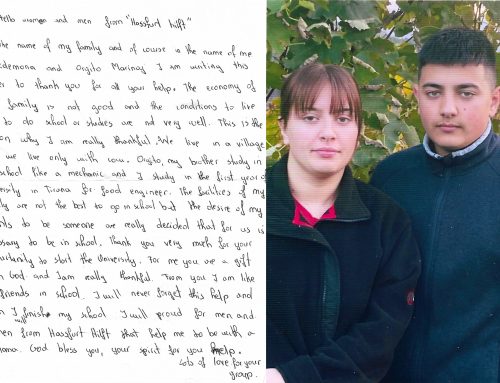 Hello women and men from "Hassfurt hilft"
the name of my family and of course in the name of me
demona and Orgito Marinaj I am writing this
er to thank you for all your help. The economy of
family is not good and the conditions to live
to do school or studies are not very well. This is the
on why I am really thankful. We live in a village
we live only with cow. Orgito, my brother study in
school like a mechanic and I study in the first year of
versity in Tirana for food engineer. The facilities of my
ily are not the best to go in school but the desire of my
nts to be someone are really decided that for us is
ssary to be in school. Thank you very much for your
ortunity to start the University. For me you are a gift
m God and I am really thankful. From you I am like
friends in school. I will never forget this help and
n I will finish my school I will proud for men and
men from Hassfurt Hilft that help me to be with a
oma. God bless you, your spirit for you help.
Lots of love for your
group.